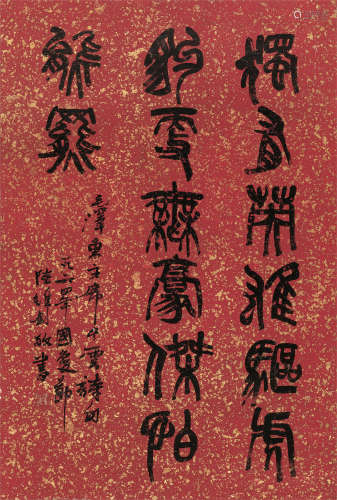 獨有英雄驅虎
豹更無豪傑怕
熊羆
毛澤東主席冬雲詩句
年國慶節
陸維釗敬書